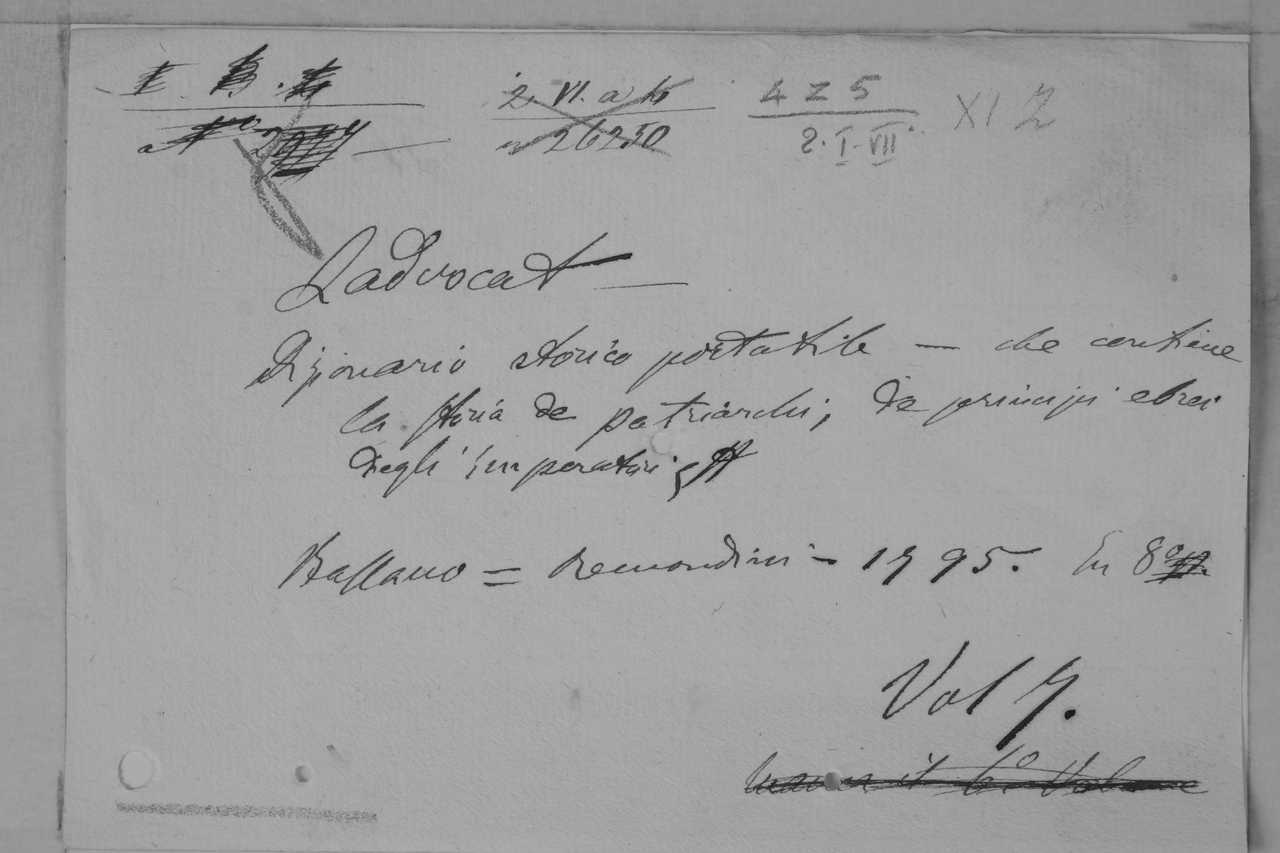 I B.
2. VI. a 15 4 Z 5 XI Z
n 26250 2. I-VII
Ladvocat —
Dizionario storico portatile — che contiene
la storia de patriarchi, de principi ebrei
degli imperatori,
Bassano = Remondini — 1795. In 8°
Vol 7.
manca il 6° Volume